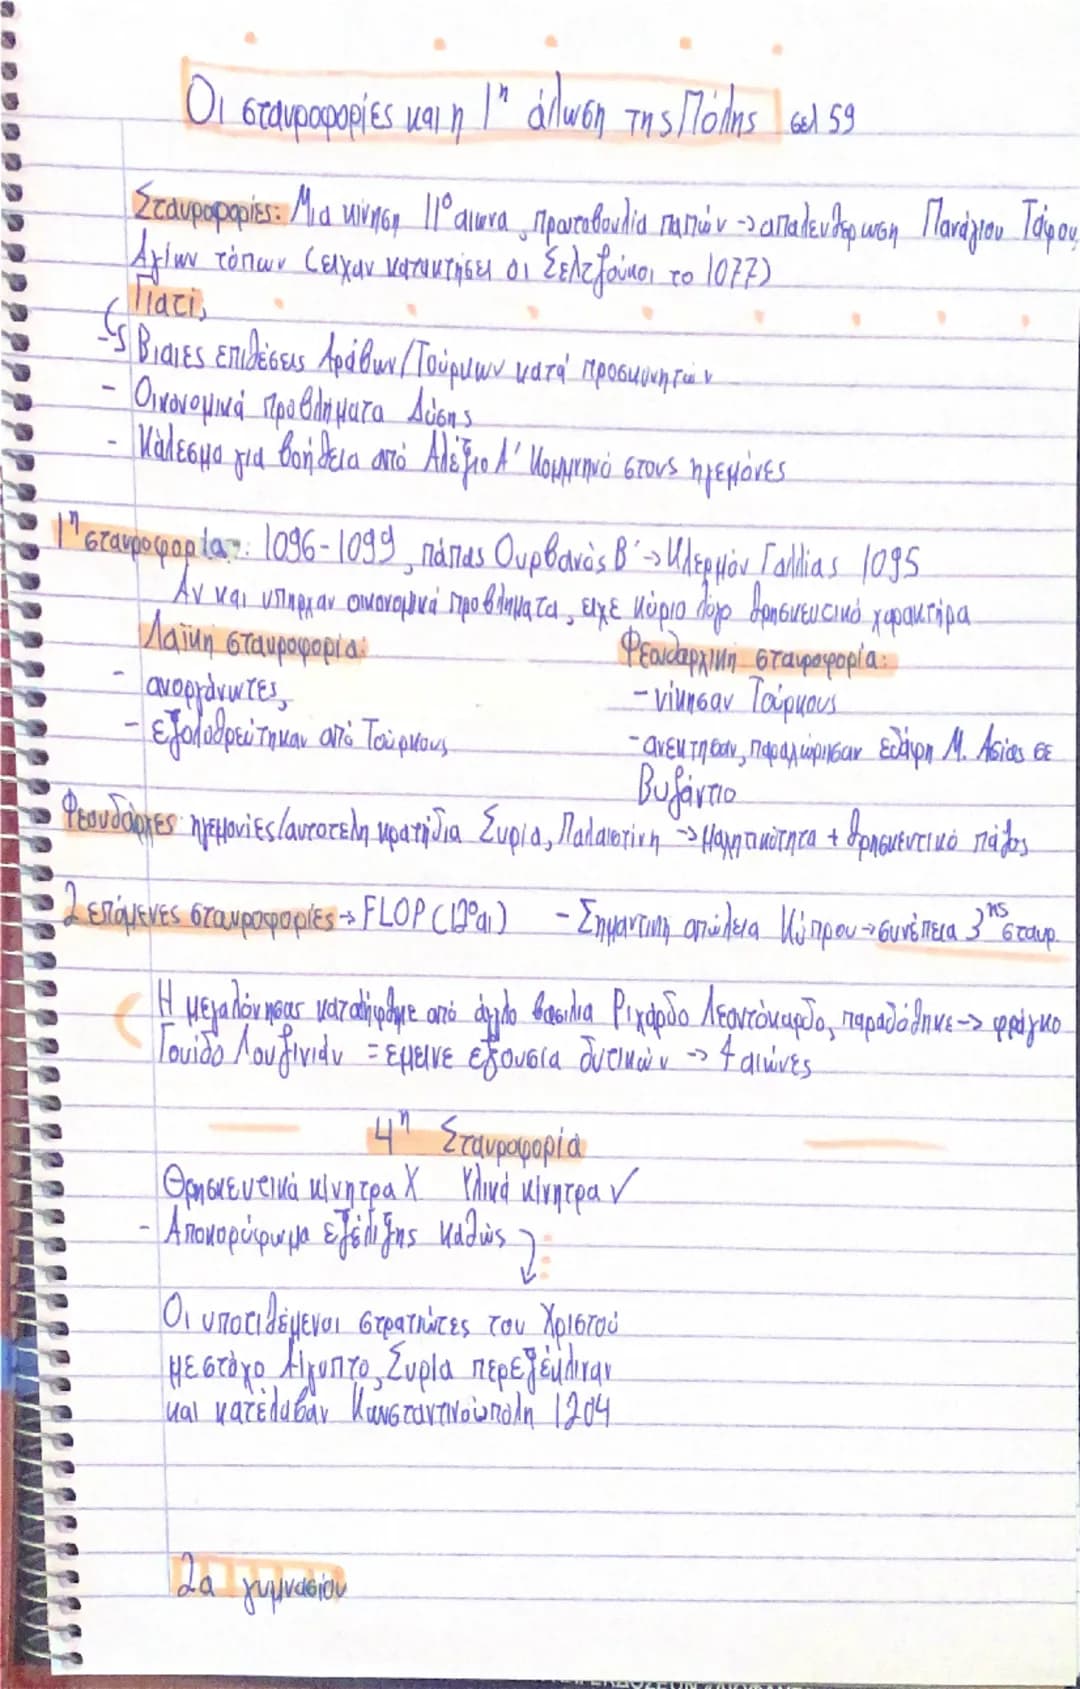 Οι σταυροφορίες και η 1η άλωση της Πόλης σελ 59
Σταυροφορίες: Μια κίνηση 11ο αιωνα, πρωτοβουλία παπών -> απελευθερωση Παναγίου Τάφου,
Αγίων τόπων (ειχαν κατακτήσει οι Σελτζούκοι το 1077)
Γιατί;
Βιαιες επιθέσεις Αράβων/Τούρκων κατά προσκυνητών
- Οικονομικά προβλήματα Δύσης
- Κάλεσμα για βοήθεια από Αλέξιο Α' Κομνηνό στους ηγεμόνες
1η σταυροφορία: 1096-1099, πάπας Ουρβανός Β' -> Κλερμόν Γαλλίας 1095
Αν και υπηρχαν οικονομικά προβληματα, ειχε κύριο λόγο θρησκευτικό χαρακτήρα
Λαϊκή σταυροφορία: Φεουδαρχική σταυροφορία:
- ανοργάνωτες, - νίκησαν Τούρκους
- εξολοθρεύτηκαν από Τούρκους - ανεκτησαν, παραχώρησαν εδάφη Μ. Ασίας σε
Βυζάντιο
Φεουδάρχες ηγεμονίες/αυτοτελη κρατήδια Συρία, Παλαιστίνη -> Μαχητικότητα + θρησκευτικό πάθος
2 επόμενες σταυροφορίες -> FLOP (12ο αι) - Σημαντική απώλεια Κύπρου -> συνέπεια 3ης σταυρ.
Η μεγαλόνησος καταλήφθηκε από άγγλο βασιλια Ριχάρδο Λεοντόκαρδο, παραδόθηκε -> φράγκο
Γουίδο Λουζινιάν = εμεινε εξουσία δυτικών -> 4 αιώνες
4η Σταυροφορία
Θρησκευτικά κίνητρα Χ Υλικά κίνητρα ✓
- Αποκορύφωμα εξέλιξης καθώς
Οι υποτιθέμενοι στρατιώτες του Χριστού
με στόχο Αίγυπτο, Συρία περεξέκλιναν
και κατέλαβαν Κωνσταντινούπολη 1204
2α γυμνασίου